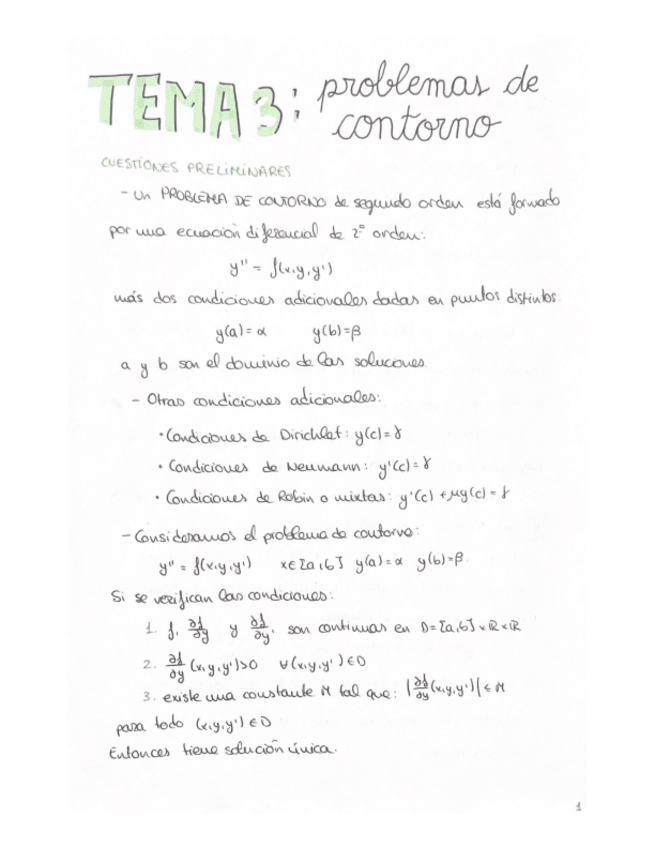 TEMA 3: problemas de
contorno
CUESTIONES PRELIMINARES
- Un PROBLEMA DE CONTORNO de segundo orden está formado
por una ecuación diferencial de 2º orden:
y'' = f(x,y,y')
más dos condiciones adicionales dadas en puntos distintos.
y(a)=α y(b)=β
a y b son el dominio de las soluciones.
- Otras condiciones adicionales:
· Condiciones de Dirichlet: y(c)=γ
· Condiciones de Neumann: y'(c)=γ
· Condiciones de Robin o mixtas: y'(c)+μy(c)=γ
- Consideramos el problema de contorno:
y'' = f(x,y,y') x∈[a,b] y(a)=α y(b)=β
Si se verifican las condiciones:
1. f, ∂f/∂y y ∂f/∂y' son continuas en D=[a,b]×ℝ×ℝ
2. ∂f/∂y (x,y,y')>0 ∀(x,y,y')∈D
3. existe una constante M tal que: |∂f/∂y (x,y,y')|≤M
para todo (x,y,y')∈D
Entonces tiene solución única.
1